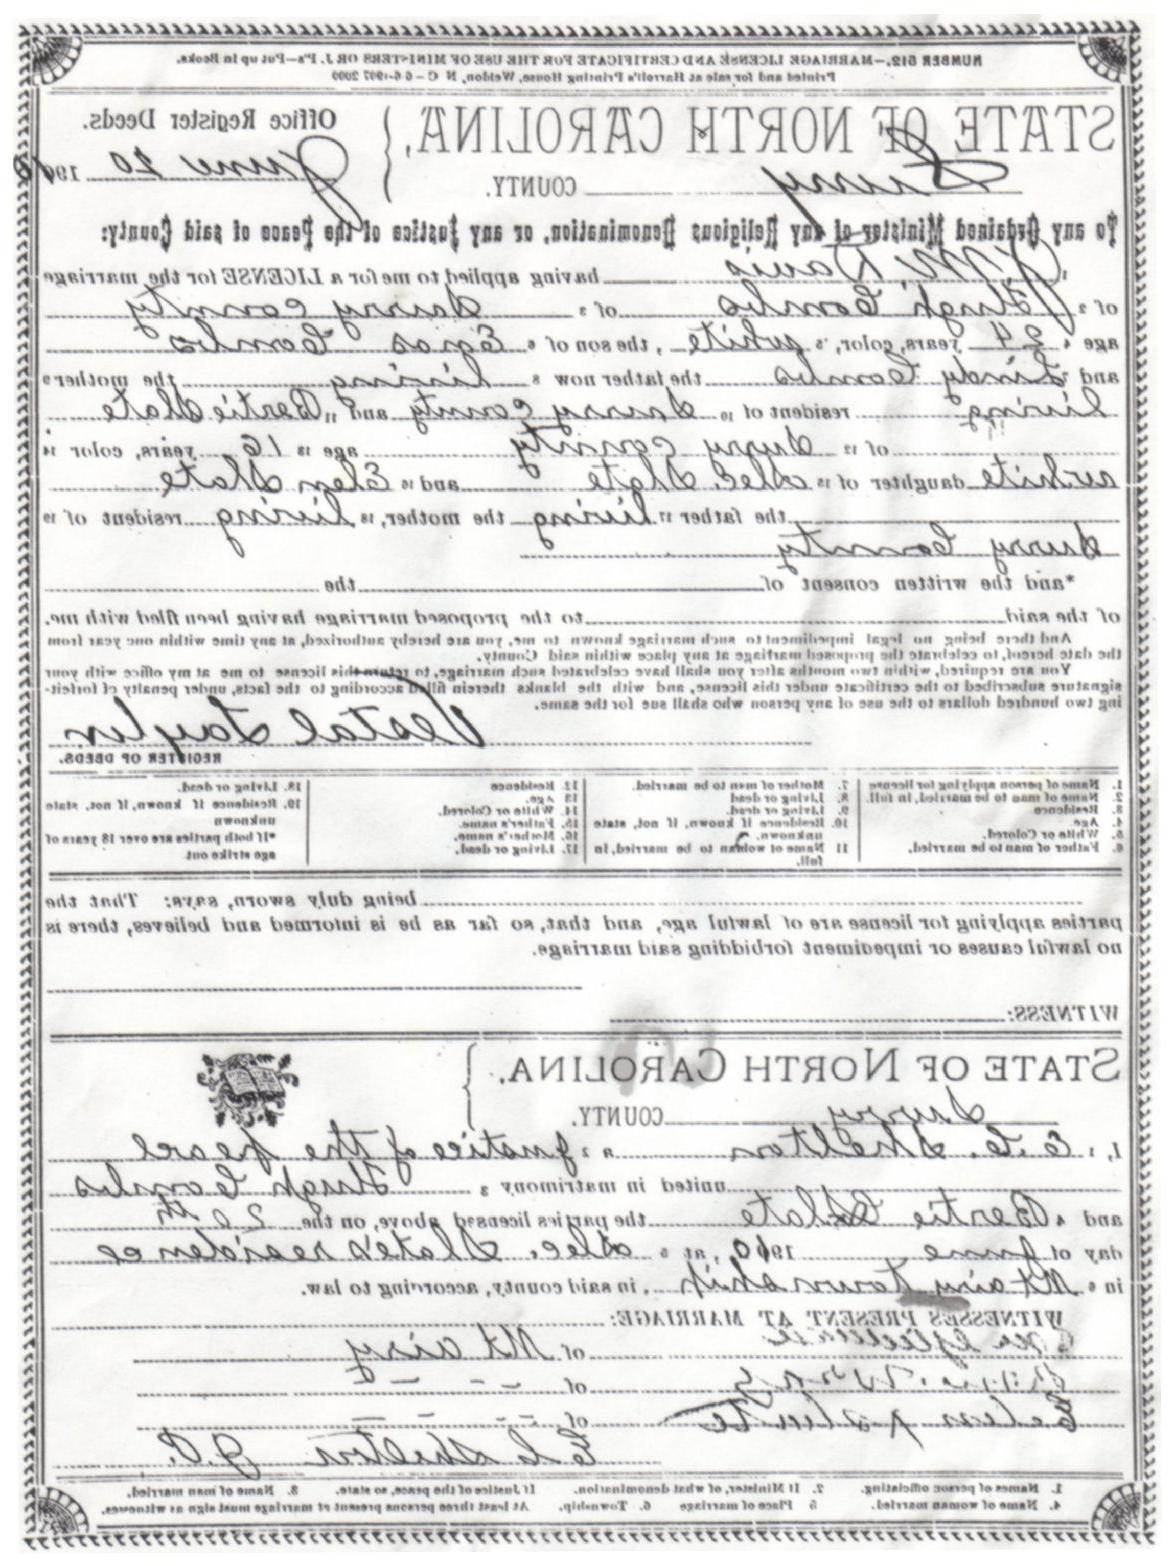 NUMBER 512.—MARRIAGE LICENSE AND CERTIFICATE FOR THE USE OF MINISTERS OR J. P's—Put up in Books.
Printed and for sale at Harrell's Printing House, Weldon, N C — 6-6-1907 2000
STATE OF NORTH CAROLINA,
Office Register Deeds.
Surry COUNTY.
June 20 191
To any Ordained Minister of any Religious Denomination, or any Justice of the Peace of said County:
1, J. M. Davis having applied to me for a LICENSE for the marriage
of 2 Hugh Combs of 3 Surry County
age 4 24 years, color, 5 white, the son of 6 Combs
and 7 Lindy Combs the father now 8 living the mother 9
living resident of 10 Surry County and 11 Bertie Slate
of 12 Surry County age 13 16 years, color 14
white daughter of 15 Alec. Slate and 16 Elen Slate
the father 17 living the mother, 18 living resident of 19
Surry County
*and the written consent of the
of the said to the proposed marriage having been filed with me.
And there being no legal impediment to such marriage known to me, you are hereby authorized, at any time within one year from
the date hereof, to celebrate the proposed marriage at any place within said County.
You are required, within two months after you shall have celebrated such marriage, to return this license to me at my office with your
signature subscribed to the certificate under this license, and with the blanks therein filled according to the facts, under penalty of forfeit-
ing two hundred dollars to the use of any person who shall sue for the same.
Vestal Taylor
REGISTER OF DEEDS.
1. Name of person applying for license
2. Name of man to be married, in full.
3. Residence
4. Age.
5. White or Colored.
6. Father of man to be married.
7. Mother of man to be married.
8. Living or dead
9. Living or dead.
10. Residence if known, if not, state
unknown.
11 Name of woman to be married, in
full.
12. Residence
13. Age.
14. White or Colored.
15. Father's name.
16. Mother's name,
17. Living or dead.
18. Living or dead.
19. Residence if known, if not, state
unknown
*If both parties are over 18 years of
age strike out
being duly sworn, says: That the
parties applying for license are of lawful age, and that, so far as he is informed and believes, there is
no lawful causes or impediment forbidding said marriage.
WITNESS:
STATE OF NORTH CAROLINA,
Surry COUNTY.
I, 1 E. C. Shelton a 2 Justice of the peace
united in matrimony 3 Hugh Combs
and 4 Bertie Slate the parties licensed above, on the 20th
day of June 1910, at 5 Alec. Slate's residence
in 6 Mt airy township, in said county, according to law.
WITNESSES PRESENT AT MARRIAGE:
of Mt airy
of
of
E C Shelton J.P.
1. Names of person officiating. 2. If Minister, of what denomination. If Justice of the peace, so state. 3. Name of man married.
4. Name of woman married. 5 Place of marriage 6. Township. At least three persons present at marriage must sign as witnesses.